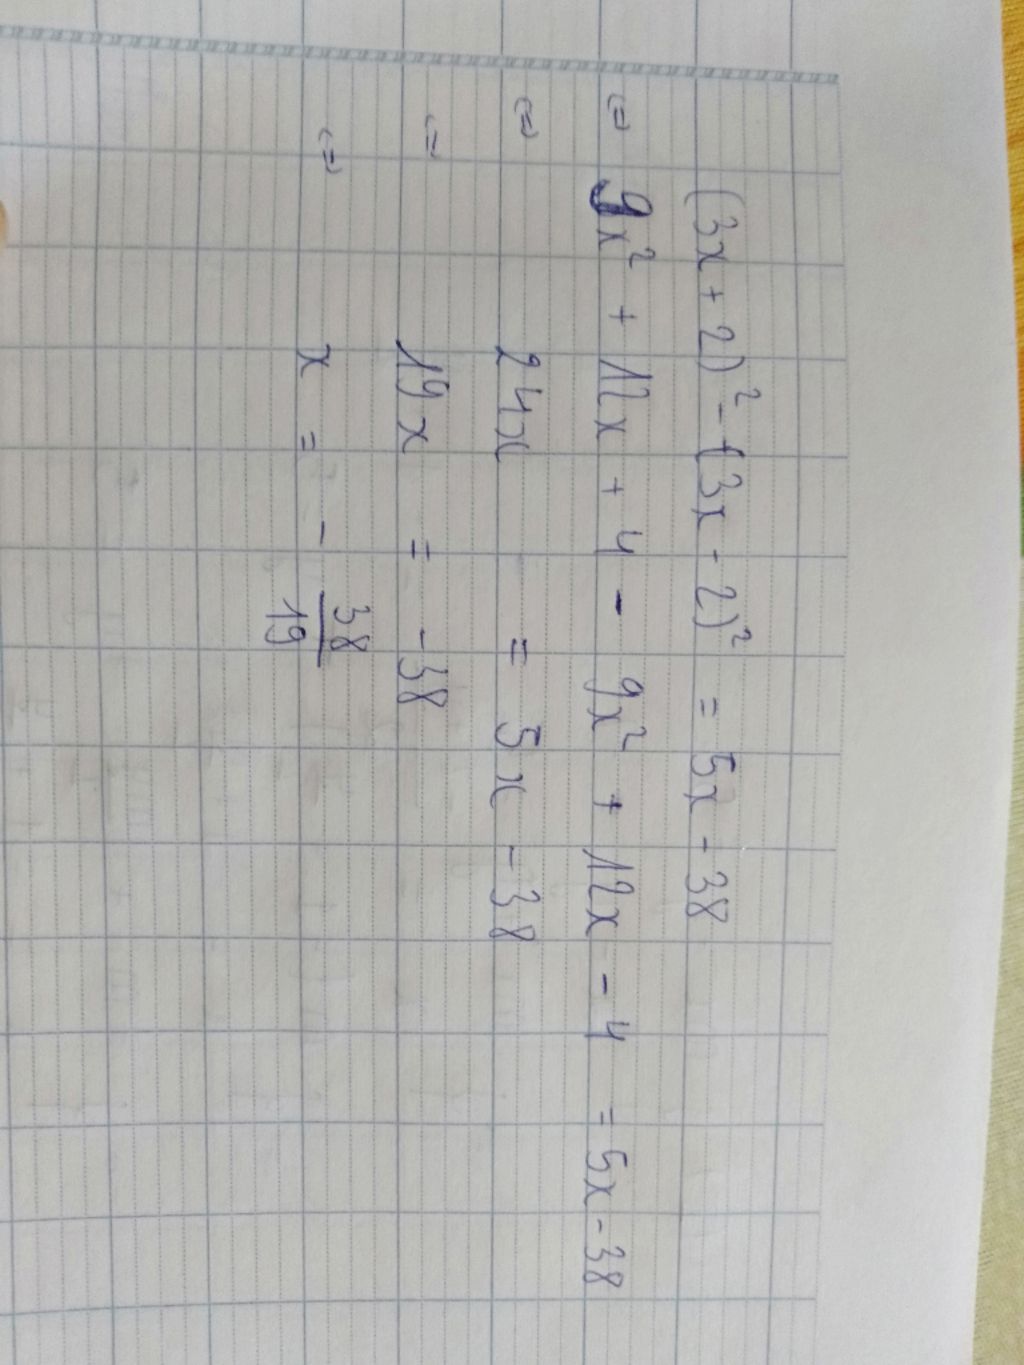 (3x + 2)² - (3x - 2)² = 5x - 38
⇔ 9x² + 12x + 4 - 9x² + 12x - 4 = 5x - 38
⇔ 24x = 5x - 38
⇔ 19x = -38
⇔ x = - 38/19